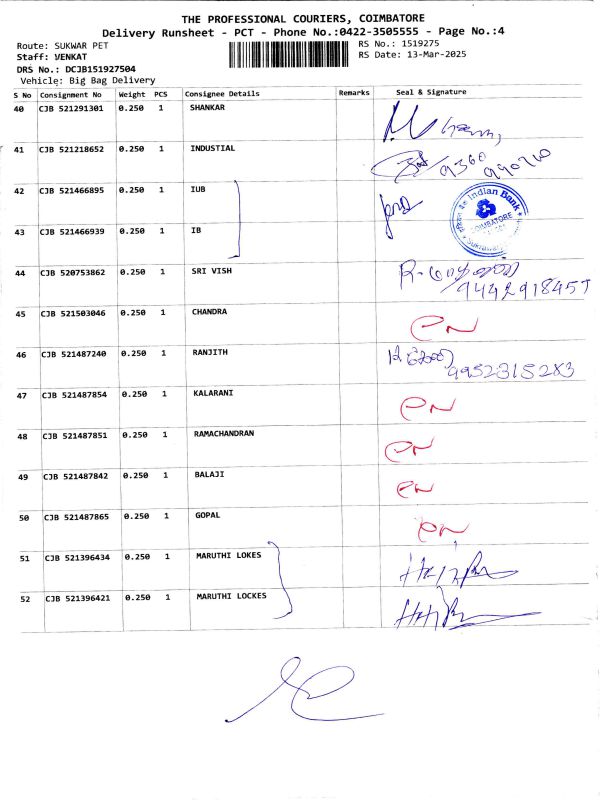 THE PROFESSIONAL COURIERS, COIMBATORE
Delivery Runsheet - PCT - Phone No.:0422-3505555 - Page No.:4
Route: SUKWAR PET
RS No.: 1519275
Staff: VENKAT
RS Date: 13-Mar-2025
DRS No.: DCJB151927504
Vehicle: Big Bag Delivery
S No Consignment No Weight PCS Consignee Details Remarks Seal & Signature
40 CJB 521291301 0.250 1 SHANKAR
41 CJB 521218652 0.250 1 INDUSTIAL
42 CJB 521466895 0.250 1 IUB
Indian Bank
COIMBATORE
43 CJB 521466939 0.250 1 IB
44 CJB 520753862 0.250 1 SRI VISH
9442918457
45 CJB 521503046 0.250 1 CHANDRA
46 CJB 521487240 0.250 1 RANJITH
9952315283
47 CJB 521487854 0.250 1 KALARANI
48 CJB 521487851 0.250 1 RAMACHANDRAN
49 CJB 521487842 0.250 1 BALAJI
50 CJB 521487865 0.250 1 GOPAL
51 CJB 521396434 0.250 1 MARUTHI LOKES
52 CJB 521396421 0.250 1 MARUTHI LOCKES